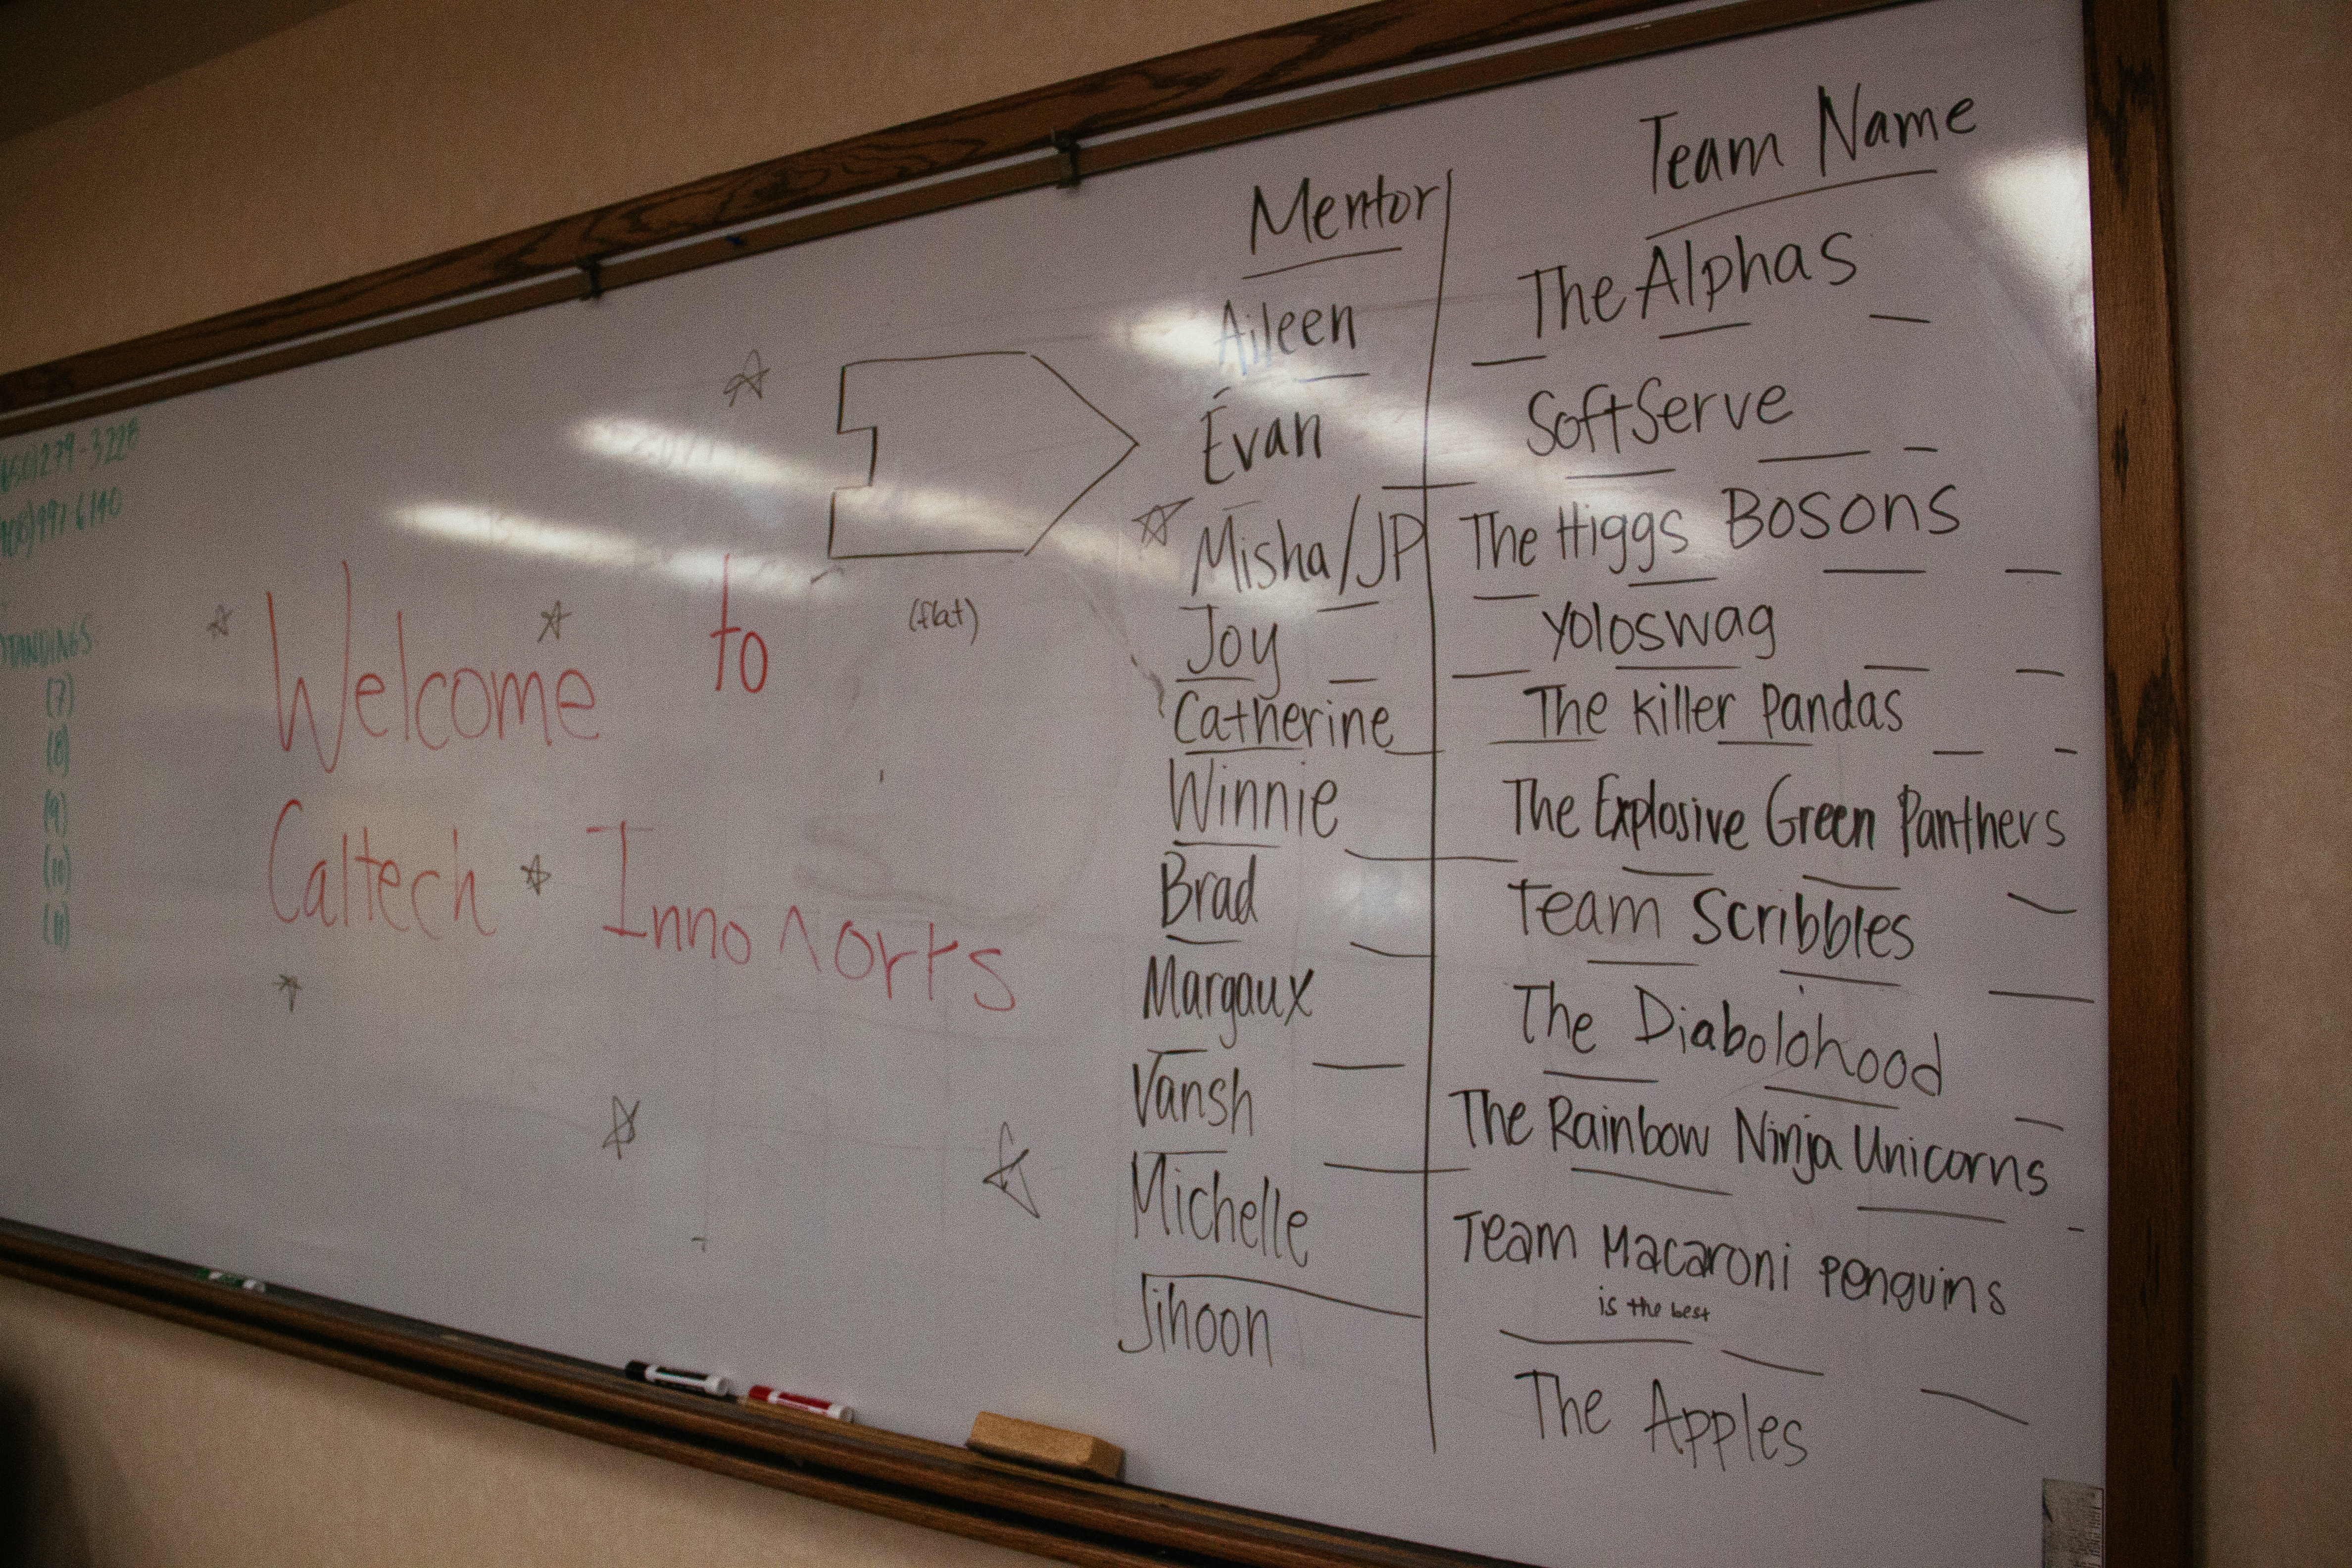 Mentor Team Name
Aileen The Alphas
Evan SoftServe
Misha/JP The Higgs Bosons
Joy Yoloswag
Catherine The Killer Pandas
Winnie The Explosive Green Panthers
Brad Team Scribbles
Margaux The Diabolohood
Vansh The Rainbow Ninja Unicorns
Michelle Team Macaroni Penguins
is the best
Jihoon The Apples
(flat)
Welcome to
Caltech Inno
(7)
(8)
(9)
(10)
(11)